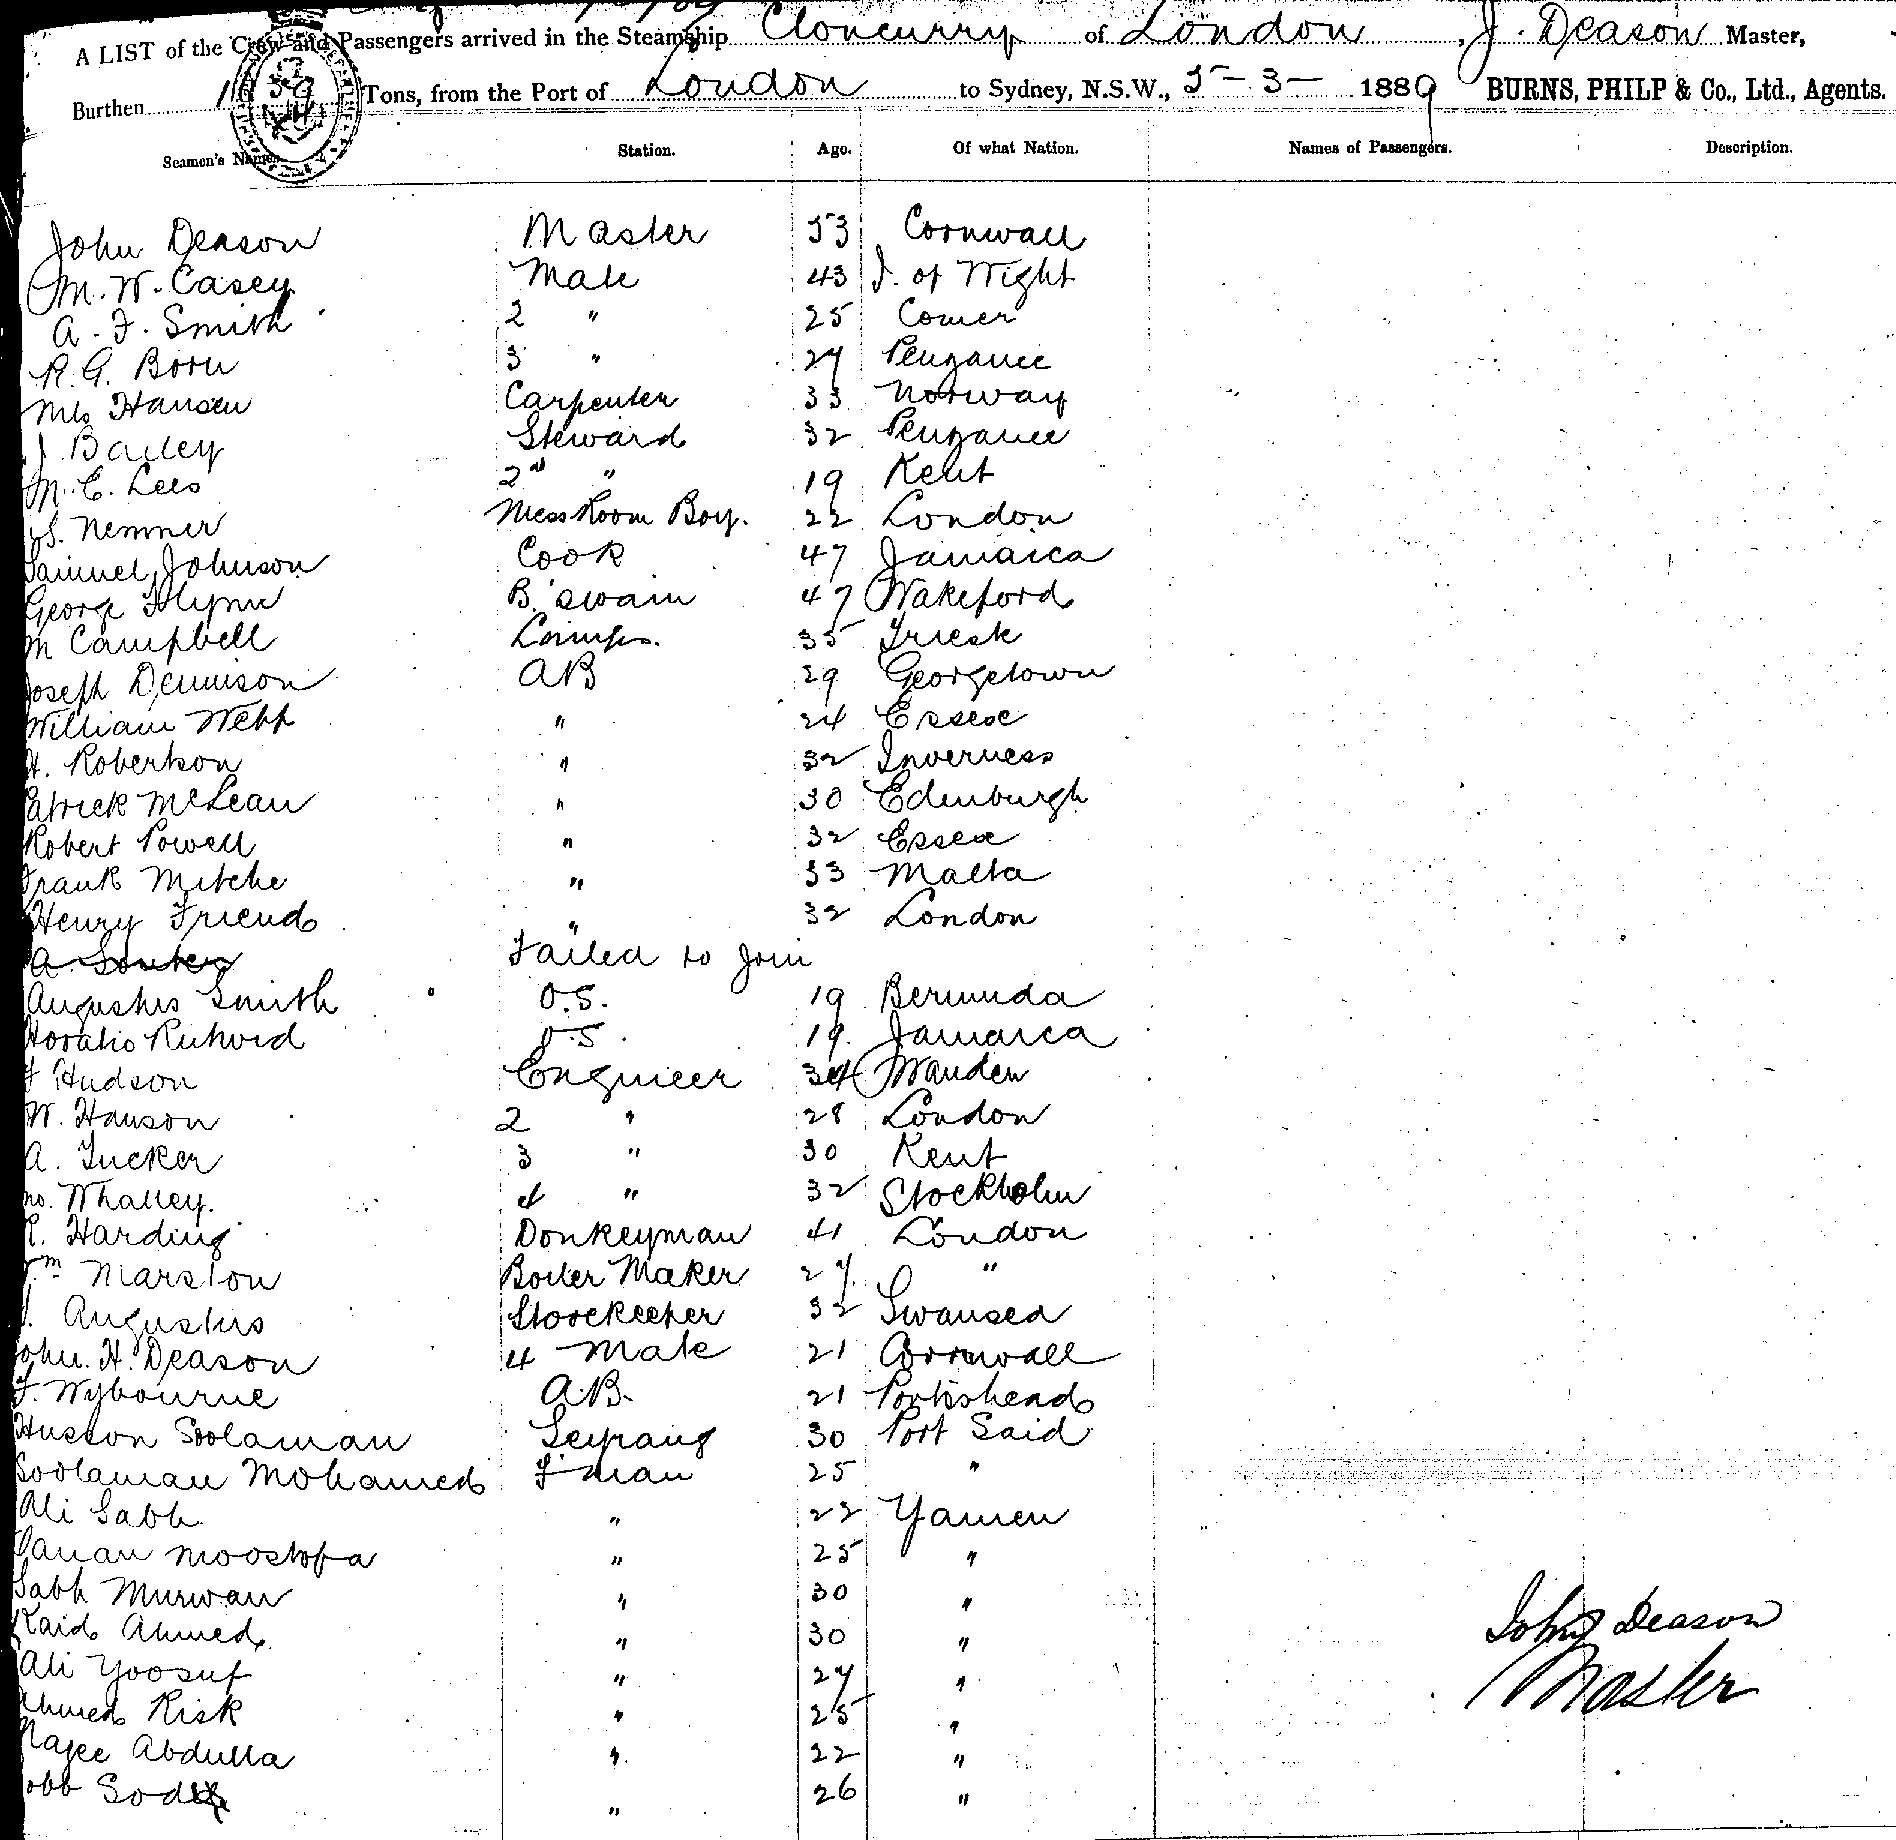 A LIST of the Crew and Passengers arrived in the Steamship Cloncurry of London, J. Deason Master,
Burthen Tons, from the Port of London to Sydney, N.S.W., 5-3- 1889 BURNS, PHILP & Co., Ltd., Agents.
Seamen's Names Station. Age. Of what Nation. Names of Passengers. Description.
John Deason Master 53 Cornwall
M. W. Casey Mate 43 I. of Wight
A. F. Smith 2 " 25
R. G. Born 3 " 27 Penzance
Hansen Carpenter 33 Norway
J Bailey Steward 32 Penzance
M. C. Lees 2nd " 19 Kent
S. Nemner Mess Room Boy. 22 London
Samuel Johnson Cook 47 Jamaica
George Flynn B.'swain 47 Wakeford
M Campbell Lamps. 35
Joseph Dennison AB 29 Georgetown
William Webb " 24 Essex
H. Robertson " 32 Inverness
Patrick McLean " 30 Edenburgh
Robert Powell " 32 Essex
Frank Mitche " 33 Malta
Henry Friend " 32 London
A. Souter Failed to join
Augustus Smith O.S. 19 Bermuda
Horatio O.S. 19. Jamaica
F Hudson Engineer 34
W. Hanson 2 " 28 London
A. Tucker 3 " 30 Kent
Jno. Whalley. 4 " 32 Stockholm
R. Harding Donkeyman 41 London
Wm Marston Boiler Maker 27 "
Augustus Storekeeper 32 Swansea
John. H. Deason 4 Mate 21 Cornwall
F. Wybourne A.B. 21 Portishead
Husson Soolaman Seyrang 30 Port Said
Soolaman Mohamed F'man 25 "
Ali Sabh " 22 Yamen
Moostofa " 25 "
Sabh Murwan " 30 "
Kaid Ahmed. " 30 "
Ali Yoosuf " 27 "
Ahmed Risk " 25 "
Najee Abdulla " 22 "
" 26 "
John Deason
Master